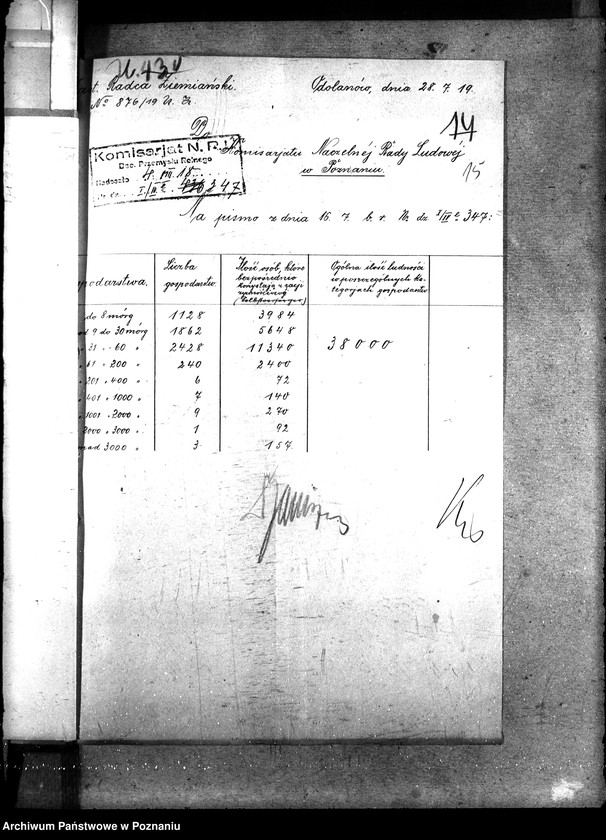 t. Radca Ziemiański.
Odolanów, dnia 28.7.19.
No 876/19
14
15
Komisarjat N. R. L.
Dec. Przemysłu Rolnego
Nadeszło
347
Do
Komisarjatu Naczelnéj Rady Ludowéj
w Poznaniu.
Na pismo z dnia 16. 7. b. r. Nr. dz I/III c 347:
podarstwa. Liczba gospodarstw. Ilość osób, które bezpośrednio korzystają z racji Ogólna ilość ludności w poszczególnych kategorjach gospodarstw
(Selbstversorger.)
do 8 mórg 1128 3984
od 9 do 30 mórg 1862 5648
31 " 60 " 2428 11340 38000
61 " 200 " 240 2400
201 " 400 " 6 72
401 " 1000 " 7 140
1001 " 2000 " 9 270
2000 " 3000 " 1 92
nad 3000 " 3 157
Archiwum Państwowe w Poznaniu